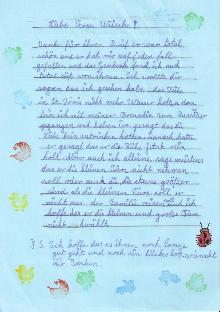 Liebe Frau
Danke für Ihren Brief er war total
schön und er hat mir auf jeden fall
gefallen und das Geschenk fand ich auch
total süß von ihnen. Ich wollte dir
sagen das ich gesehen habe das die Tiere
in St. nicht mehr Wasser hatten dann
bin ich mit meiner Freundin zum
gegangen und haben ihm gesagt das die
Tiere ein Danach hat
er gesagt das er die Tiere jetzt rein
holt. Aber auch ich alleine sage
das er die kleinen Tiere nicht nehmen
soll oder auch die die etwas größer
sind als die kleinen Tiere soll er
nicht aus der Familie reißen und ich
hoffe das er die kleinen und große Tiere
nicht
P.S. Ich hoffe das es ihnen noch lange
gut geht und noch ein